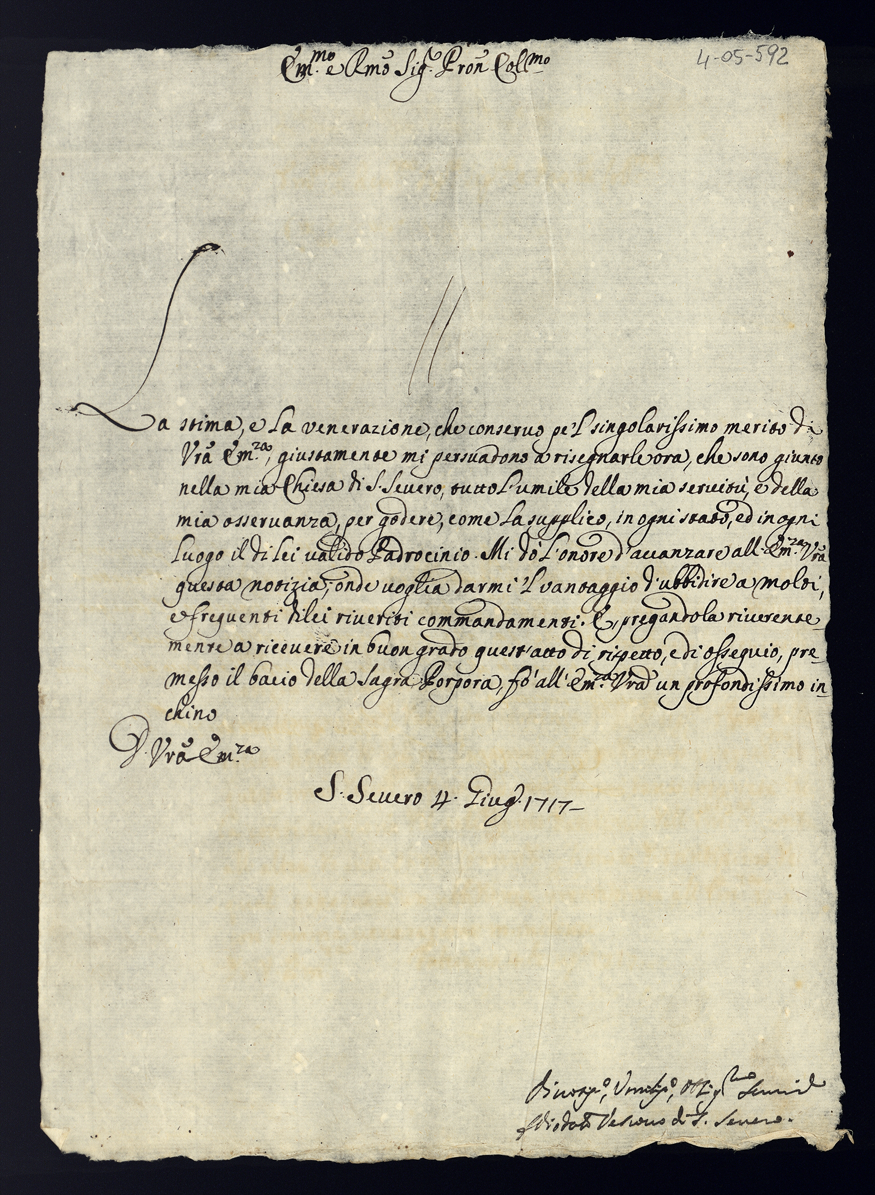 4-05-592
Em.mo e Rmo Sig.r Pron Coll.mo
La stima, e la venerazione, che conservo pe'l singolarissimo merito di
Vrã Em.za, giustamente mi persuadono a risegnarle ora, che sono giunto
nella mia Chiesa di S. Severo, tutto l'umile della mia servitù, e della
mia osservanza, per godere, come la supplico, in ogni stato, ed in ogni
luogo il di lei valido Padrocinio. Mi dò l'onore d'avanzare all'Em.za Vrã
questa notizia, onde voglia darmi 'l vantaggio d'ubbidire a molti,
e frequenti di lei riveriti commandamenti. E, pregandola riverente-
mente a ricevere in buon grado quest'atto di rispetto, e di ossequio, pre-
messo il bacio della Sagra Porpora, fò all'Em.za Vrã un profondissimo in-
chino
D. Vrã Em.za
S. Severo 4. Giug.o 1717
Divotiss.o, Umiliss.o, Obblig.mo
Vescovo di S. Severo.